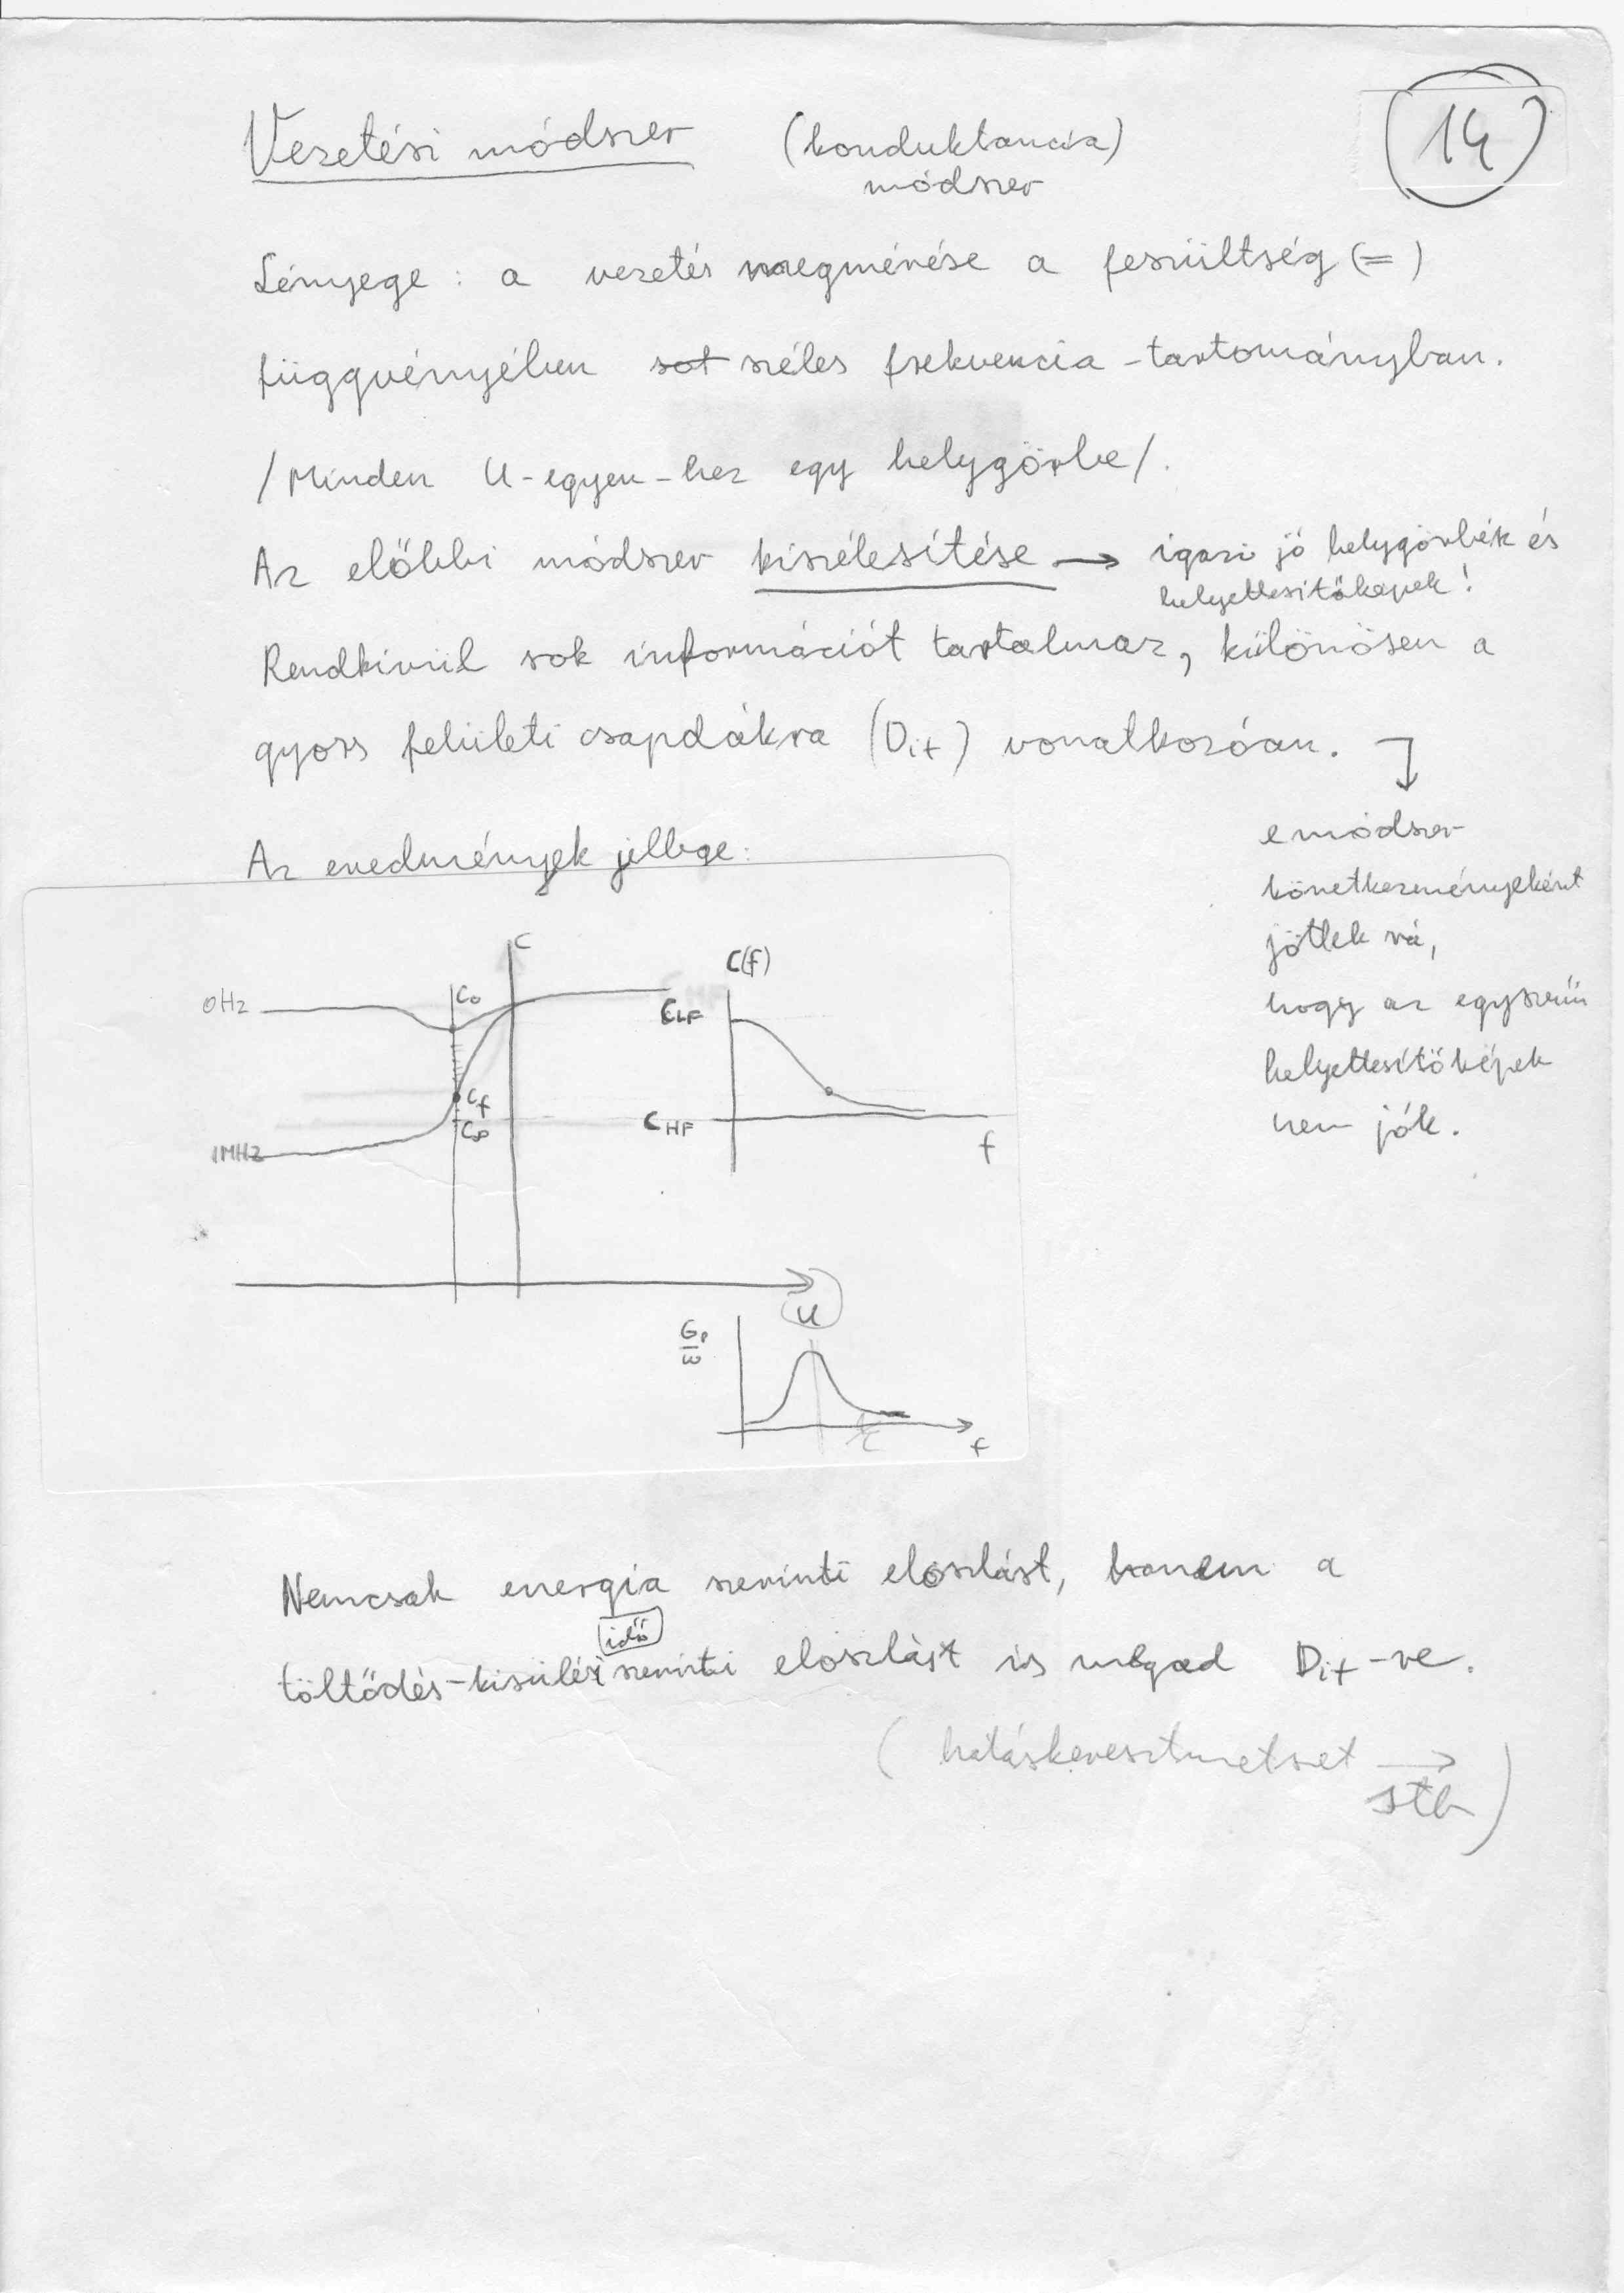 Vezetési módszer (konduktancia) 14
módszer
Lényege : a vezetés megmérése a feszültség (=)
függvényében sot széles frekvencia-tartományban.
/Minden U-egyen-hez egy helygörbe/.
Az előbbi módszer kiszélesítése → igazi jó helygörbék és
helyettesítőképek!
Rendkívül sok információt tartalmaz, különösen a
gyors felületi csapdákra (Dit) vonatkozóan.
e módszer
következményeként
jöttek rá,
hogy az egyszerű
helyettesítőképek
nem jók.
Az eredmények jellege:
C
0Hz
C₀
Cf
C∞
1MHz
U
C(f)
CLF
CHF
f
Gp
ω
f
Nemcsak energia szerinti eloszlást, hanem a
idő
töltődés-kisülési szerinti eloszlást is megad Dit-re.
( hatáskeresztmetszet →
stb )